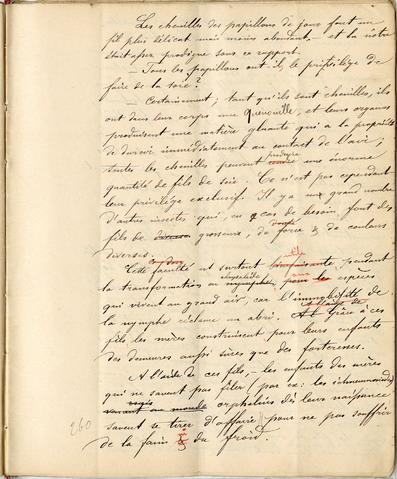 Les chenilles des papillons de jour font un
fil plus délicat mais moins abondant — et la nôtre
était assez prodigue sous ce rapport.
— Tous les papillons ont-il, le privilège de
faire de la soie?
— Certainement; tant qu'ils sont chenilles, ils
ont dans leur corps une quenouille, et leurs organes
produisent une matière gluante qui a la propriété
de durcir immédiatement au contact de l'air;
produire
toutes les chenilles peuvent une énorme
quantité de fils de soie. Ce n'est pas cependant
leur privilège exclusif. Il y a grand nombre
d'autres insectes qui, en cas de besoin, font des
fils de grosseur, de force & de couleur
diverses.
Cette faculté est surtout pendant
la transformation en espèces
qui vivent au grand air, car l'immobilité de
la nymphe réclame un abri. Grâce à ces
fils les mères construisent pour leurs enfants
des demeures aussi sûres que des forteresses.
A l'aide de ces fils, — les enfants des mères
qui ne savent pas filer (par ex: les ichneumonides)
orphelins dès leur naissance
savent se tirer d'affaire pour ne pas souffrir
260
de la faim & du froid.